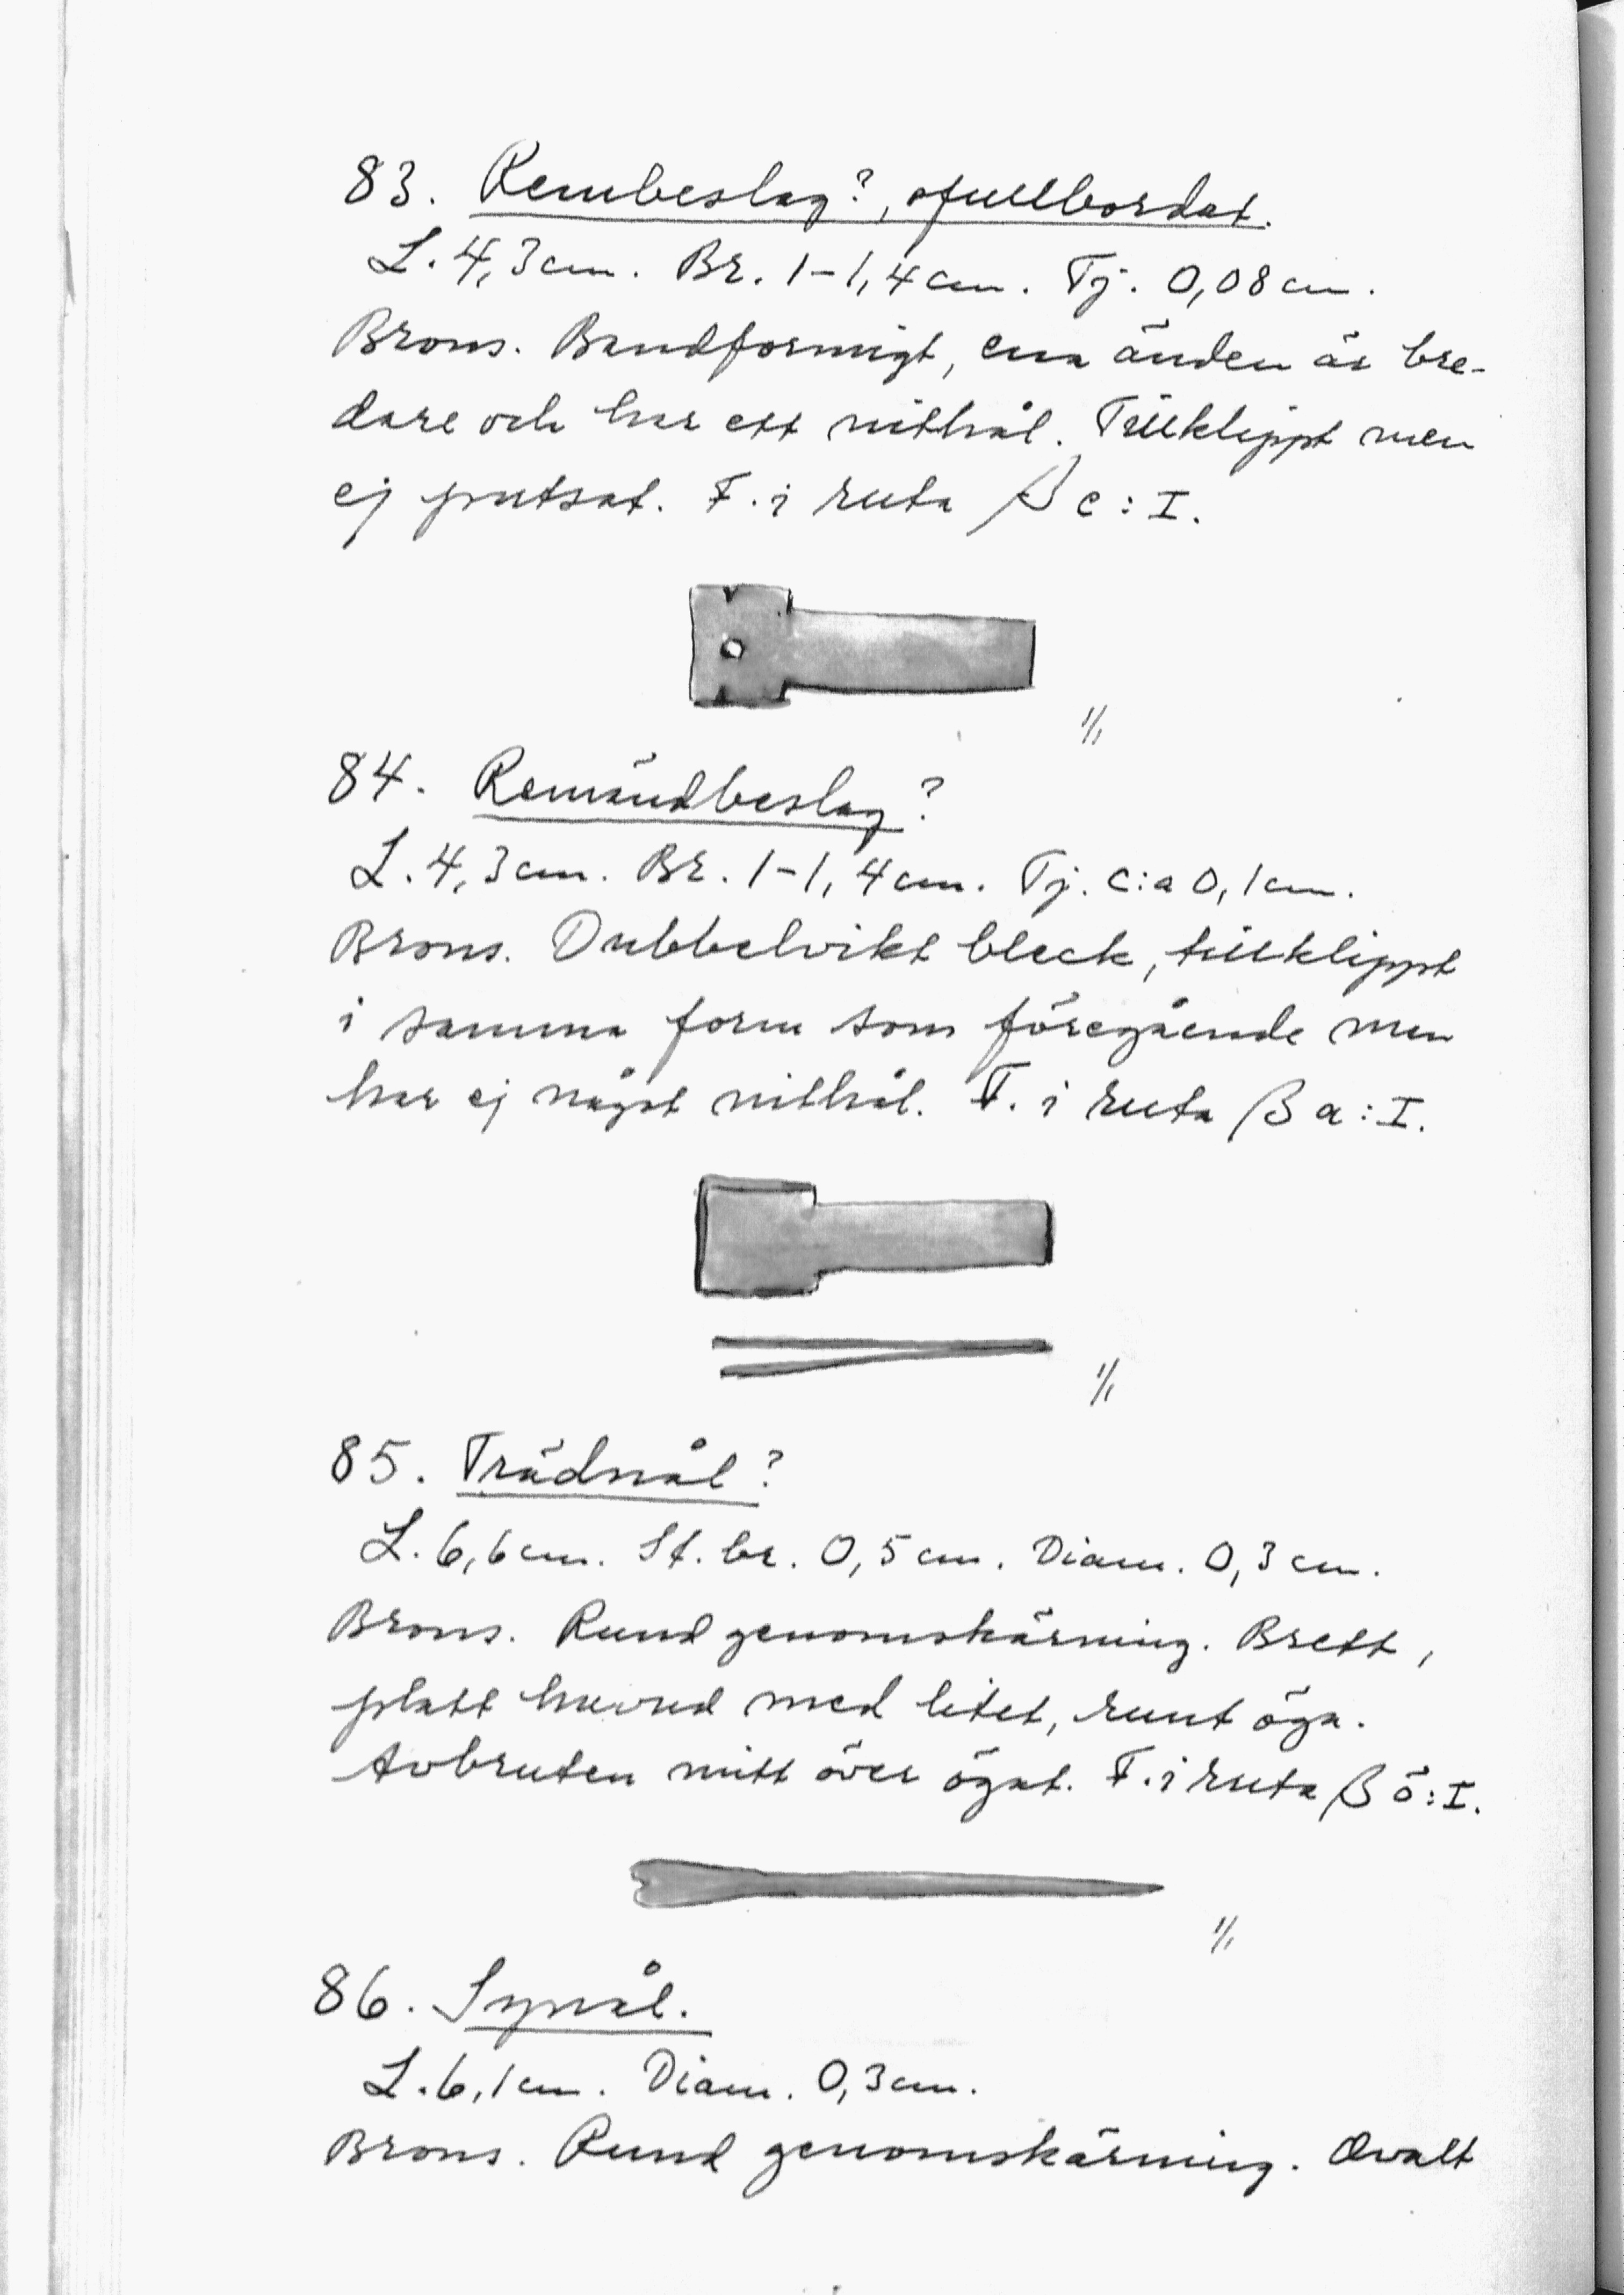 83. Rembeslag?, ofullbordat.
L. 4,3 cm. Br. 1-1,4 cm. Tj. 0,08 cm.
Brons. Bandformigt, ena änden är bre-
dare och har ett nithål. Tillklippt men
ej putsat. F. i ruta β c : I.
1/1
84. Remändbeslag?
L. 4,3 cm. Br. 1-1,4 cm. Tj. c:a 0,1 cm.
Brons. Dubbelvikt bleck, tillklippt
i samma form som föregående men
har ej något nithål. F. i ruta β a : I.
1/1
85. Trädnål?
L. 6,6 cm. St. br. 0,5 cm. Diam. 0,3 cm.
Brons. Rund genomskärning. Brett,
platt huvud med litet, runt öga.
Avbruten mitt över ögat. F. i ruta β ö : I.
1/1
86. Synål.
L. 6,1 cm. Diam. 0,3 cm.
Brons. Rund genomskärning. Ovalt